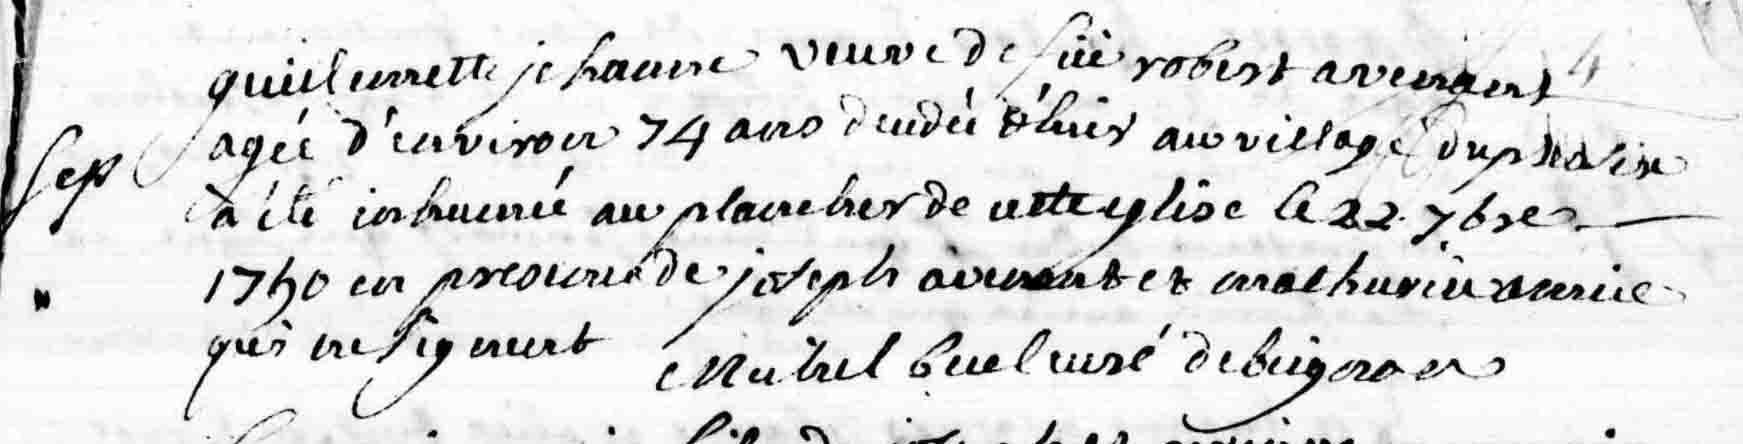 guillemette jehanne veuve de feü robert avenant
Sep
agée d'environ 74 ans decdée d'hier au village du plessix
a été inhumée au plancher de cette eglise le 22 7bre
1750 en presence de joseph avenant et mathurin annie
qui ne signent Michel buel curé de bignan